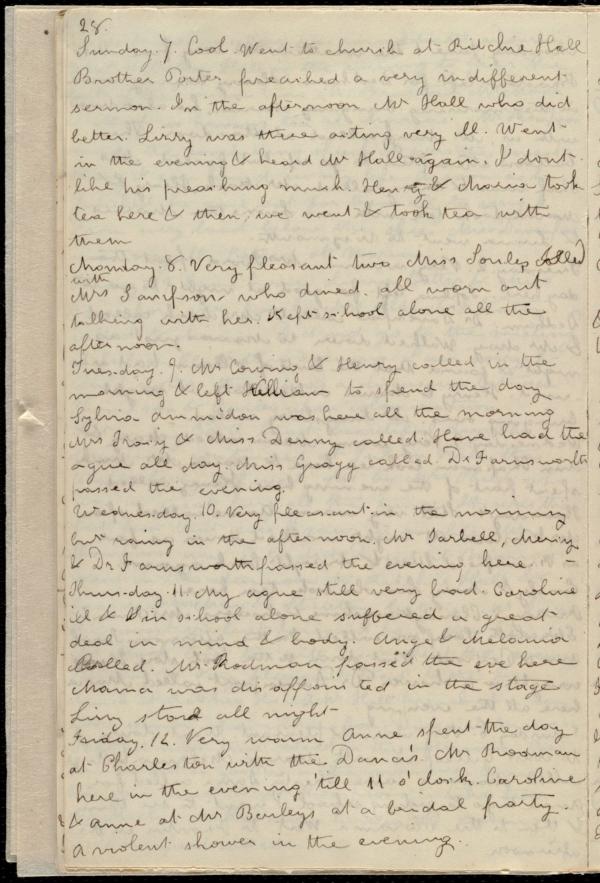 28.
Sunday. 7. Cool. Went to church at Ritchie Hall
Brother Porter preached a very indifferent
sermon. In the afternoon Mr Hall who did
better. Lizzy was there acting very ill. Went
in the evening & heard Mr Hall again. I dont
like his preaching much. Henry & Maria took
tea here & then, we went & took tea with
them
Monday. 8. Very pleasant two Miss called
with
Mrs who dined. all worn out
talking with her. Kept school alone all the
afternoon.
Tuesday. 9. Mr & Henry called in the
morning & left William to spend the day
Sylvia Ammidon was here all the morning
Mrs & Miss Denny called. Have had the
ague all day. Miss Gragg called. Dr Farnsworth
passed the evening.
Wednesday. 10. Very pleasant in the morning
but rainy in the afternoon. Mr Tarbell,
& Dr Farnsworth passed the evening here. –
Thursday. 11. My ague still very bad. Caroline
ill & I in school alone suffered a great
deal in mind & body. Ange & Melania
called. Mr Rodman passed the eve here
Mama was disappointed in the stage
Lizzy staid all night
Friday. 12. Very warm Anne spent the day
at Charleston with the Dana's. Mr Rodman
here in the evening 'till 11 o'clock. Caroline
& Anne at Mr Baileys at a bridal party.
A violent shower in the evening.